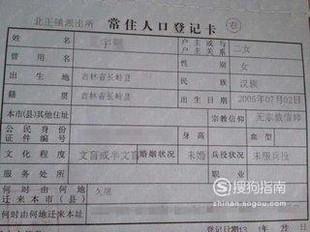 北正镇派出所 常住人口登记卡
姓名 户主或与户主关系 二女
曾用名 性别 女
出生地 吉林省长岭县 民族 汉族
籍贯 吉林省长岭县 出生日期 2005年07月02日
本市(县)其他住址 宗教信仰 无宗教信仰
公民身份证件编号 身高 血型
文化程度 文盲或半文盲 婚姻状况 未婚 兵役状况 未服兵役
服务处所 职业
何时由何地迁来本市(县)
何时由何地迁来本址
登记日期
搜狗指南